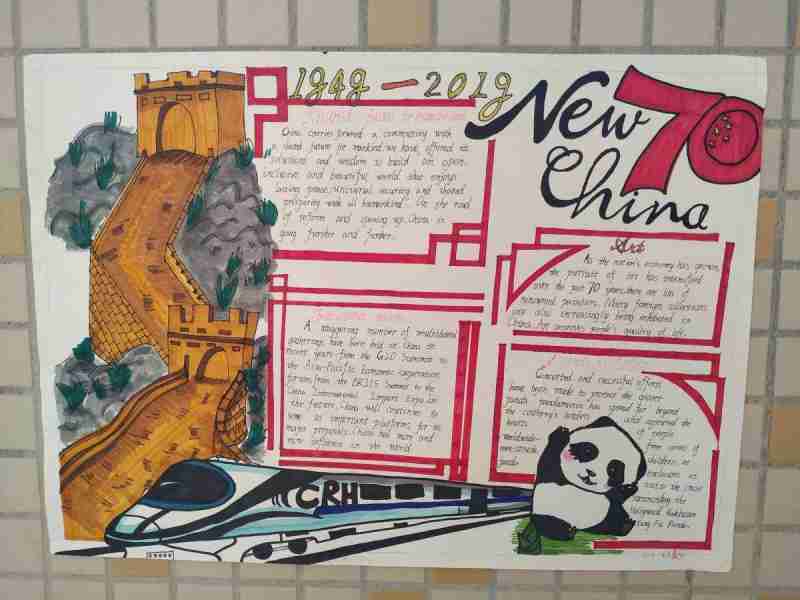 1949 — 2019
New 70
China
future for
China carries forward a community with
a shared future for mankind. we have offered its
solutions and wisdom to build an open,
inclusive and beautiful world that enjoys
lasting peace, universal security and shared
prosperity with all humankind. On the road
of reform and opening up, China is
going further and further.
Art
As the nation's economy has grown,
the pursuit of art has intensified
over the past 70 years, there are lots of
renowned painters. Many foreign collections
are also increasingly being exhibited in
China. Art promotes people's quality of life.
A staggering number of multilateral
gatherings have been held in China in
recent years from the G20 Summit to
the Asia-Pacific Economic cooperation
forum, from the BRICS Summit to the
China International Import Expo. In
the future, China will continue to
serve as important platforms for its
major proposals. China has more and
more influence in the world.
Concerted and successful efforts
have been made to protect the giant
panda. pandamania has spread far beyond
the country's borders and captured the
hearts of people
worldwide
from
children
the most
Hollywood
Kung Fu Panda.
CRH